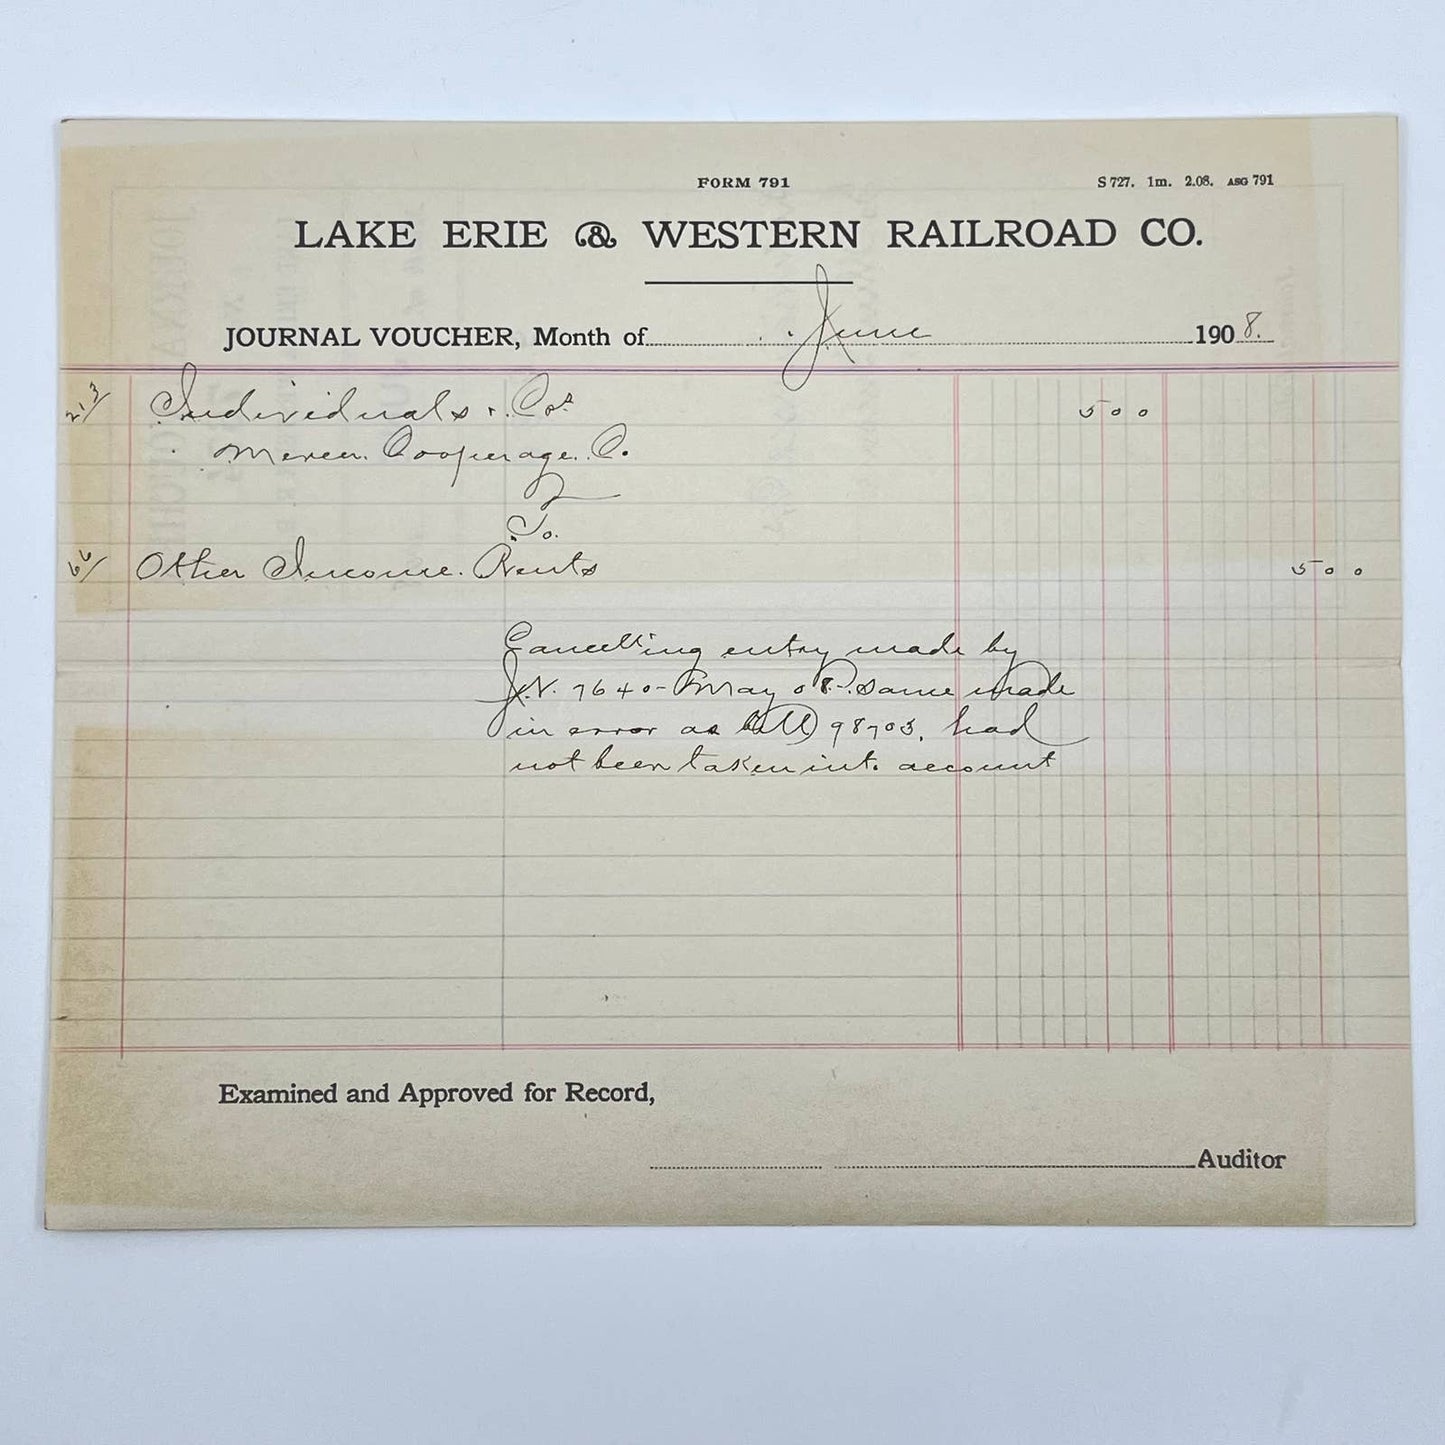 FORM 791
S 727. 1m. 2.08. ASG 791
LAKE ERIE & WESTERN RAILROAD CO.
JOURNAL VOUCHER, Month of June 1908.
213/ Individuals & Cos. 5 00
Mercer Cooperage Co.
To.
66/ Other Income. Rents 5 00
Cancelling entry made by
J.V. 7640 - May 08. same made
in error as bill 98703, had
not been taken into account
Examined and Approved for Record,
Auditor